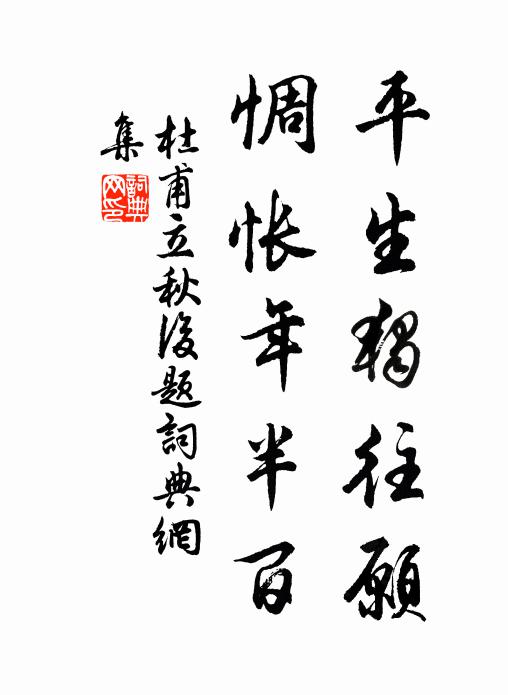 平生獨往願
惆悵年半百
杜甫立秋後題詞典網
集
詞典
网印